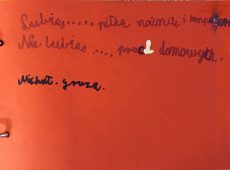 Lubię..... piłkę nożną i kompu
Nie lubię .... prac domowych.
Michał. gruza.